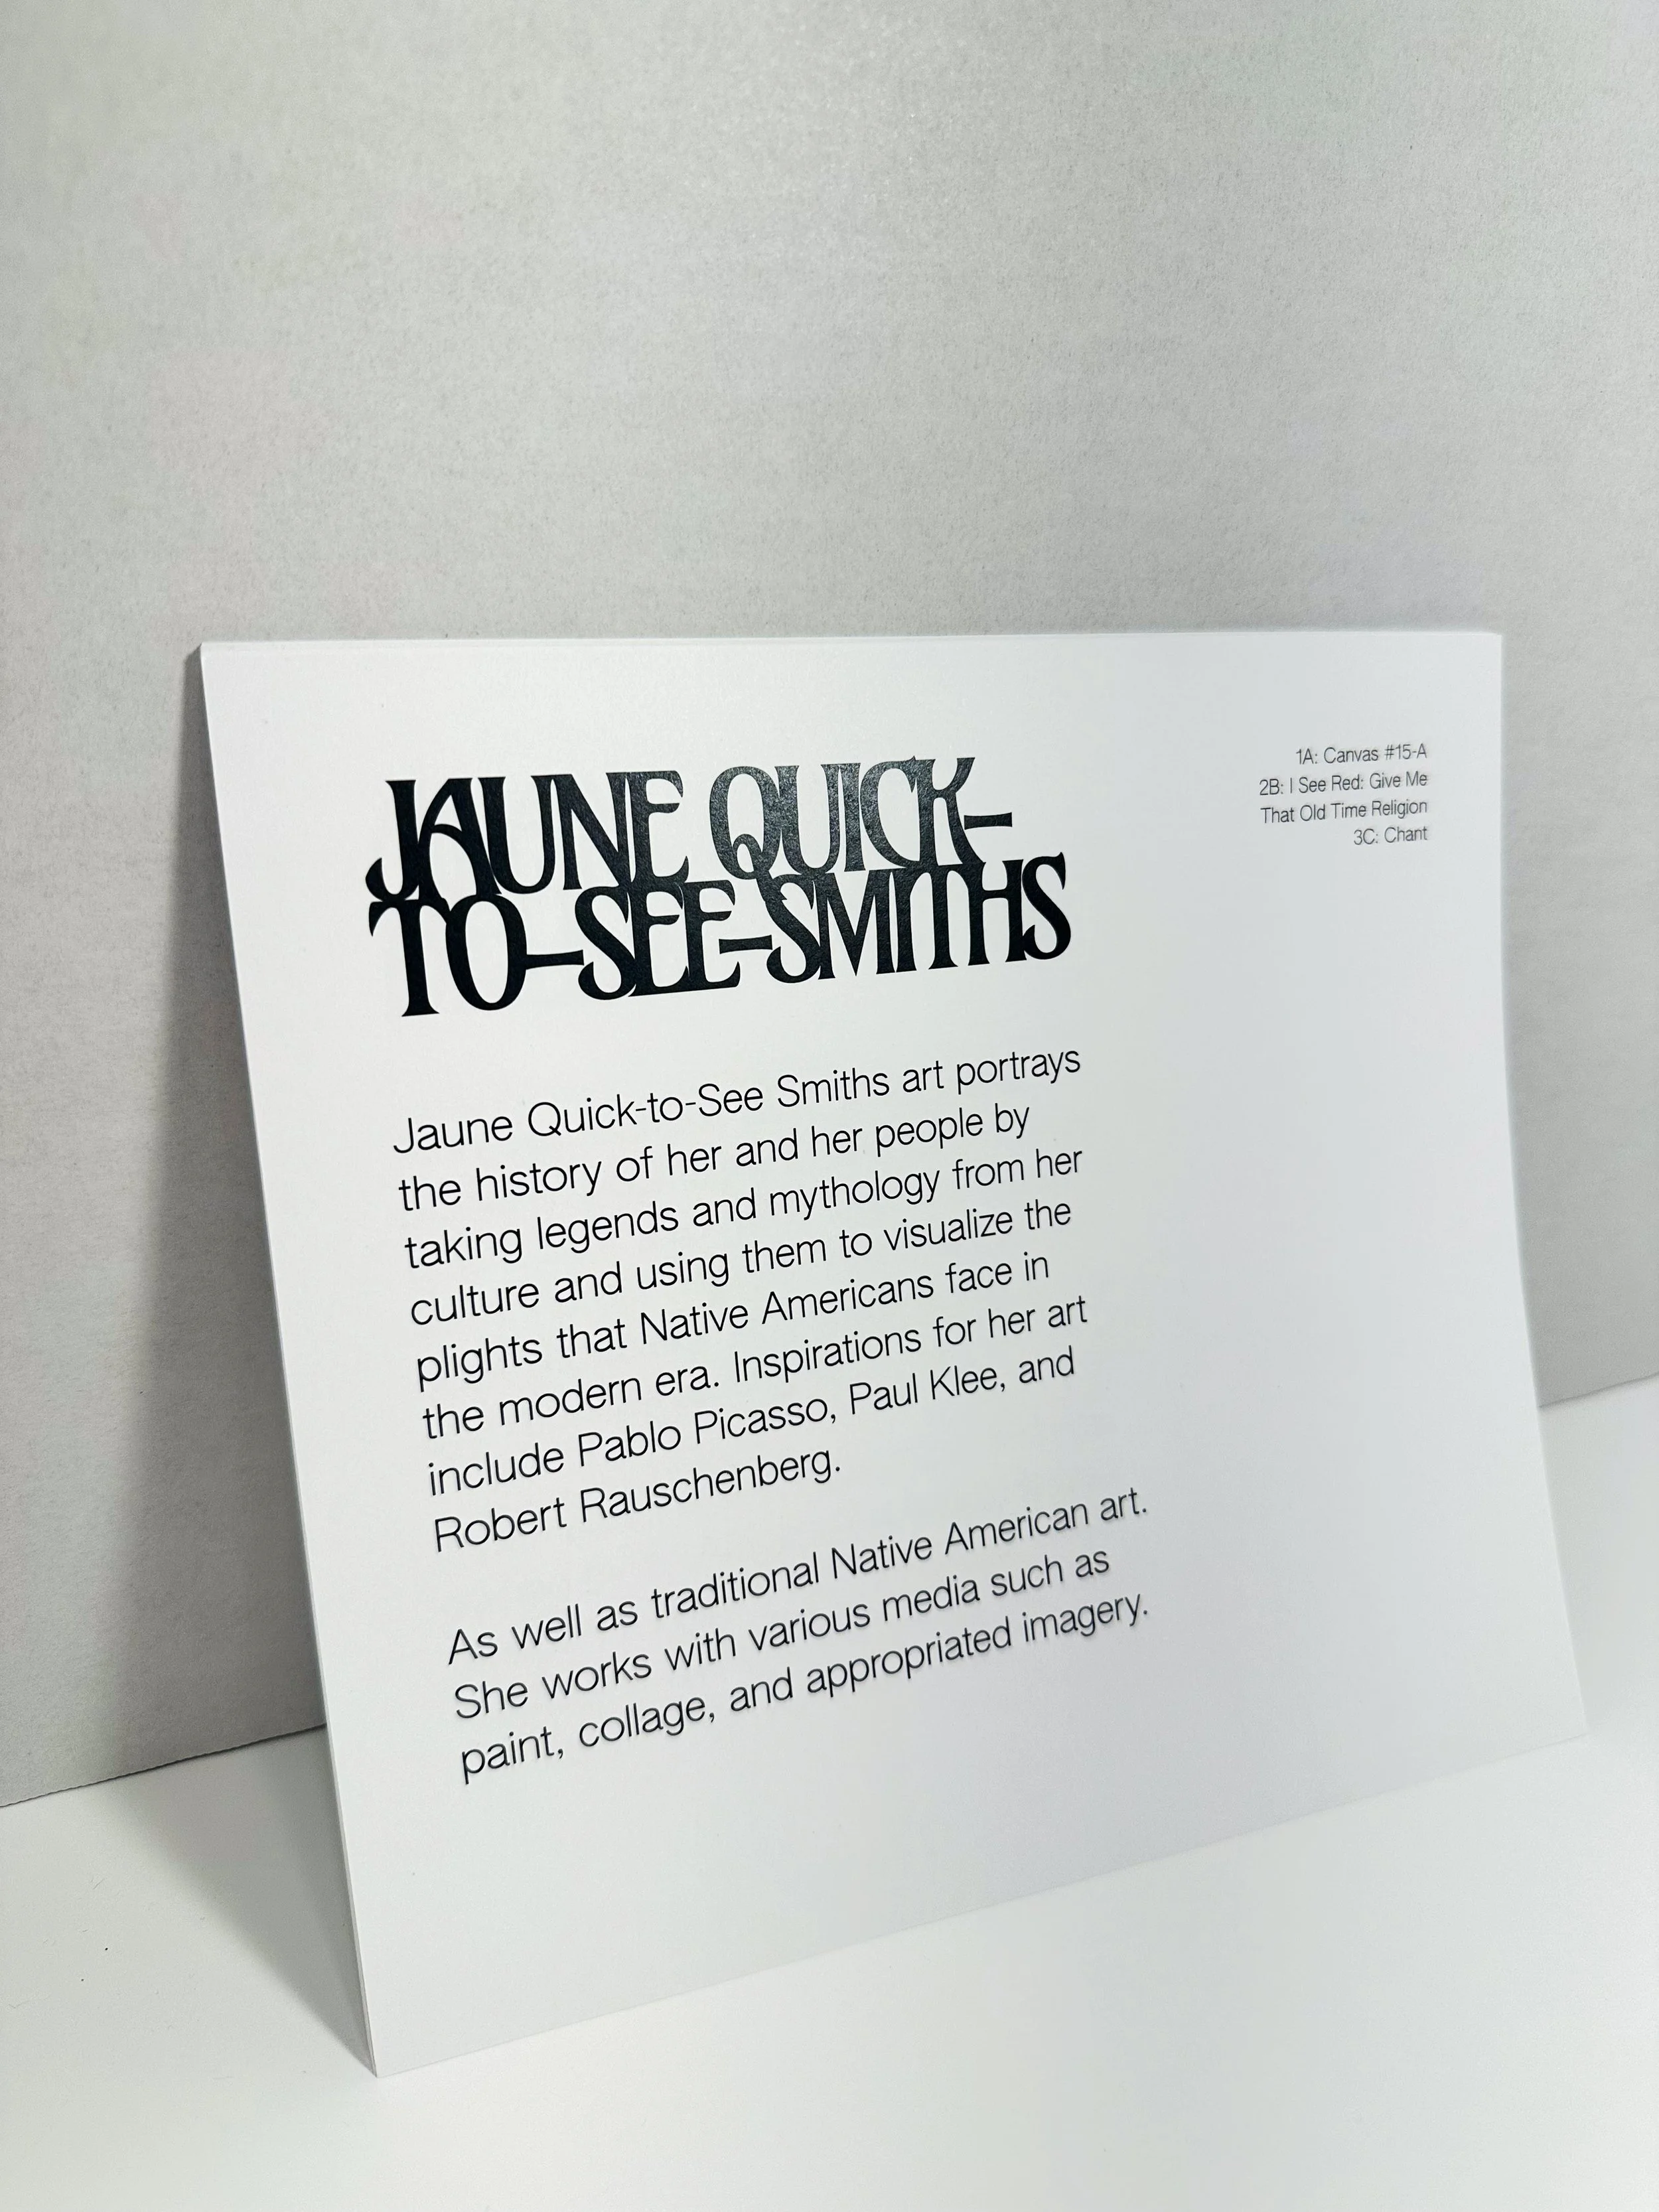 JAUNE QUICK-
TO-SEE-SMITHS
1A: Canvas #15-A
2B: I See Red: Give Me
That Old Time Religion
3C: Chant
Jaune Quick-to-See Smiths art portrays
the history of her and her people by
taking legends and mythology from her
culture and using them to visualize the
plights that Native Americans face in
the modern era. Inspirations for her art
include Pablo Picasso, Paul Klee, and
Robert Rauschenberg.
As well as traditional Native American art.
She works with various media such as
paint, collage, and appropriated imagery.